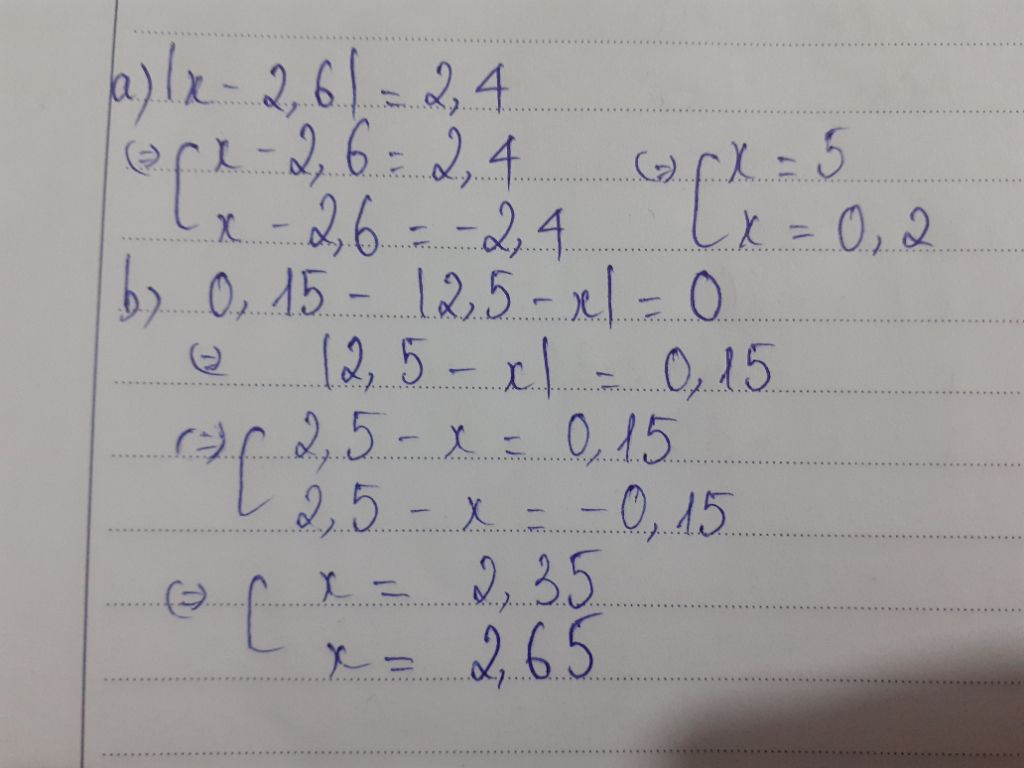 a) |x - 2,6| = 2,4
⇔ [ x - 2,6 = 2,4 ⇔ [ x = 5
x - 2,6 = -2,4 x = 0,2
b) 0,15 - |2,5 - x| = 0
⇔ |2,5 - x| = 0,15
⇔ [ 2,5 - x = 0,15
2,5 - x = -0,15
⇔ [ x = 2,35
x = 2,65